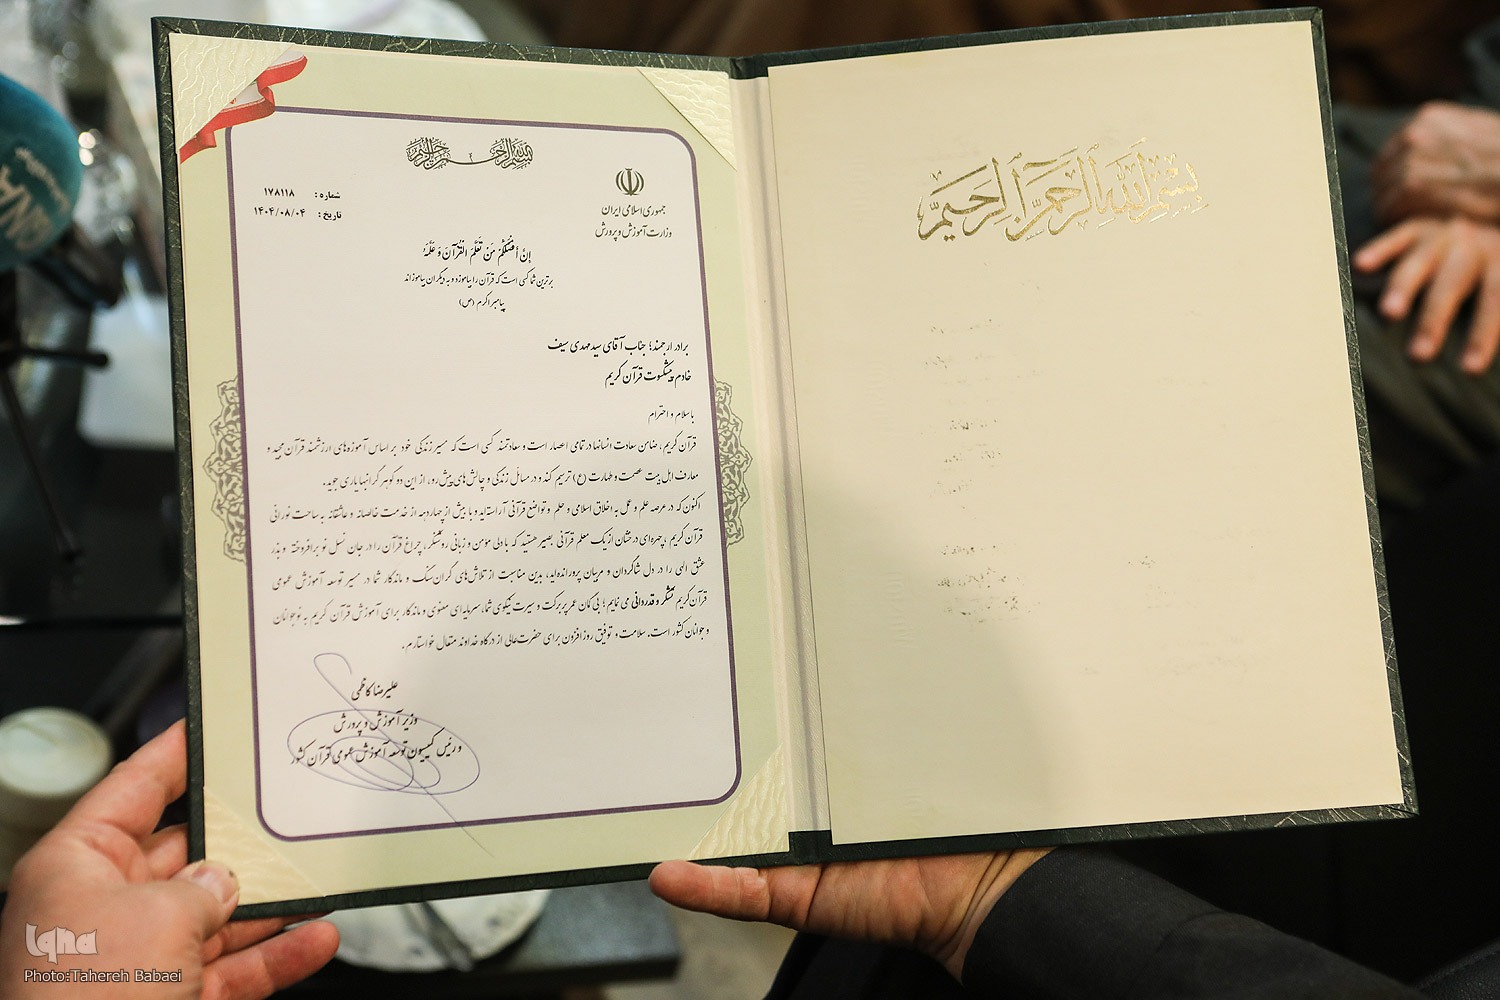 بسم الله الرحمن الرحیم
جمهوری اسلامی ایران
وزارت آموزش و پرورش
شماره : ۱۷۸۱۱۸
تاریخ : ۱۴۰۴/۰۸/۰۴
إنَّ أفضَلَکُم مَن تَعَلَّمَ القُرآنَ وَ عَلَّمَهُ
برترین شما کسی است که قرآن را بیاموزد و به دیگران بیاموزاند
پیامبر اکرم (ص)
برادر ارجمند؛ جناب آقای سید مهدی سیف
خادم پیشکسوت قرآن کریم
با سلام و احترام
قرآن کریم، ضامن سعادت انسانها در تمامی اعصار است و سعادتمند کسی است که مسیر زندگی خود بر اساس آموزه‌های ارزشمند قرآن مجید و
معارف اهل بیت عصمت و طهارت (ع) ترسیم کند و در مسائل زندگی و چالش‌های پیش‌رو، از این دو گوهر گرانبها یاری جوید.
اکنون که در عرصه علم و عمل به اخلاق اسلامی و حلم و تواضع قرآنی آراسته‌اید و با بیش از چهار دهه از خدمت خالصانه و عاشقانه به ساحت نورانی
قرآن کریم، چهره‌ای درخشان از یک معلم قرآنی بصیر هستید که با دلی مؤمن و زبانی روشنگر، چراغ قرآن را در جان نسل نو برافروخته و بذر
عشق الهی را در دل شاگردان و مربیان پرورانده‌اید، بدین مناسبت از تلاش‌های گران‌سنگ و ماندگار شما در مسیر توسعه آموزش عمومی
قرآن کریم تشکر و قدردانی می نمایم؛ بی گمان عمر پربرکت و سیرت نیکوی شما، سرمایه‌ای معنوی و ماندگار برای آموزش قرآن کریم به نوجوانان
و جوانان کشور است. سلامت و توفیق روز افزون برای حضرت‌عالی از درگاه خداوند متعال خواستارم.
علیرضا کاظمی
وزیر آموزش و پرورش
و رئیس کمیسیون توسعه آموزش عمومی قرآن کشور
بسم الله الرحمن الرحیم
iqna
Photo:Tahereh Babaei